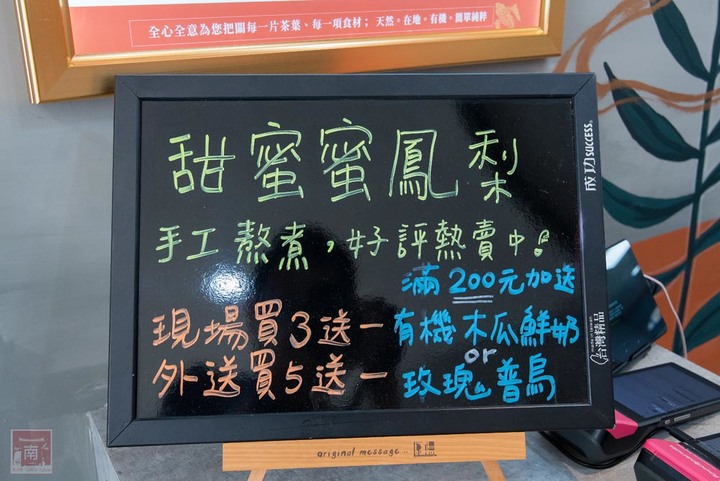 全心全意為您把關每一片茶葉、每一項食材；天然。在地。有機。簡單純粹
甜蜜蜜鳳梨
手工熬煮，好評熱賣中！
滿200元加送
現場買3送一
外送買5送一
有機木瓜鮮奶
or
玫瑰普烏
成功SUCCESS®
台灣精品
original message
南